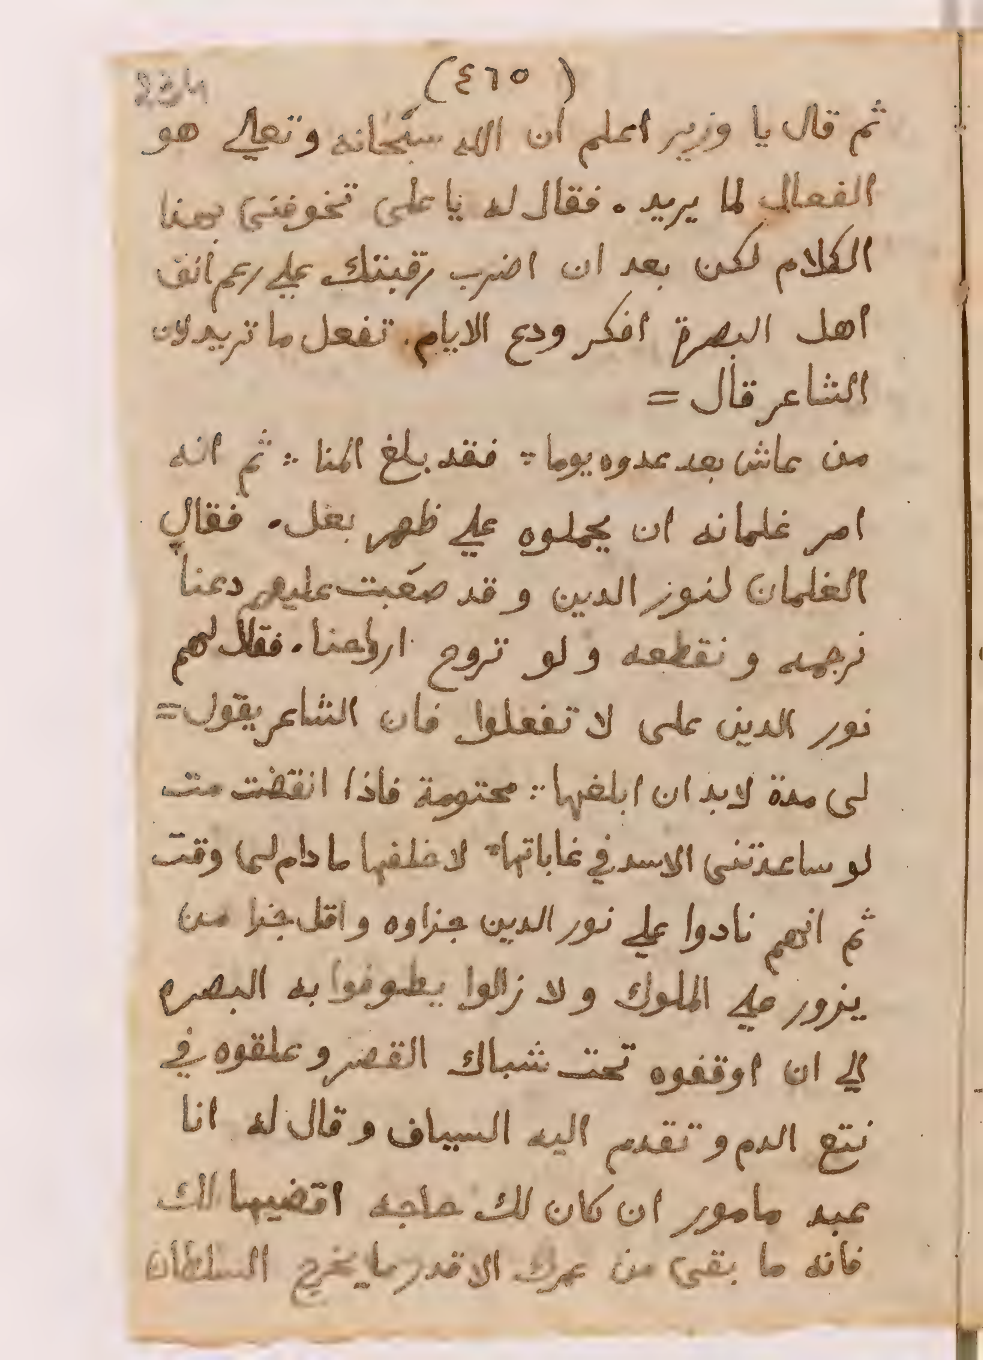 234
(٤٦٥)
ثم قال يا وزير اعلم ان الله سبحانه وتعالي هو
الفعال لما يريد . فقال له يا على تخوفنى بهذا
الكلام لكن بعد ان اضرب رقبتك علي رعم انف
اهل البصرة افكر ودع الايام . تفعل ما تريد لان
الشاعر قال =
من عاش بعد عدوه يوما ∴ فقد بلغ المنا ∴ ثم انه
امر غلمانه ان يحملوه علي ظهر بغل . فقال
الغلمان لنور الدين وقد صعبت عليهم دعنا
نرجمه ونقطعه ولو تروح ارواحنا . فقال لهم
نور الدين على لا تفعلوا فان الشاعر يقول =
لى مدة لابد ان ابلغها ∴ محتومة فاذا انقضت مت
لو ساعدتنى الاسد في غاباتها ∴ لا خلفها ما دام لى وقت
ثم انهم نادوا علي نور الدين جزاوه واقل جزا من
يزور علي الملوك ولا زالوا يطوفوا به البصره
الي ان اوقفوه تحت شباك القصر وعلقوه في
نتع الدم وتقدم اليه السياف وقال له انا
عبد مامور ان كان لك حاجه اقضيها لك
فانه ما بقى من عمرك الا قدر ما يخرج السلطان